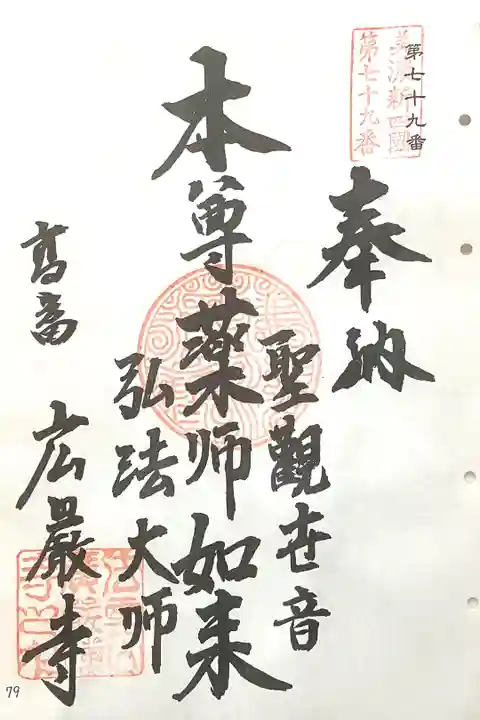 第七十九番
美濃新四國
第七十九番
奉納
聖觀世音
本尊薬师如来
弘法大师
髙富
広嚴寺
79